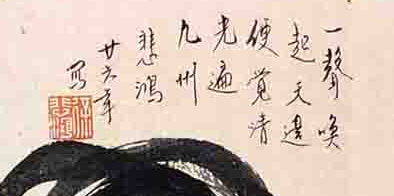 一聲喚
起天邊
便覺清
光遍
九州
悲鴻
廿六年
寫